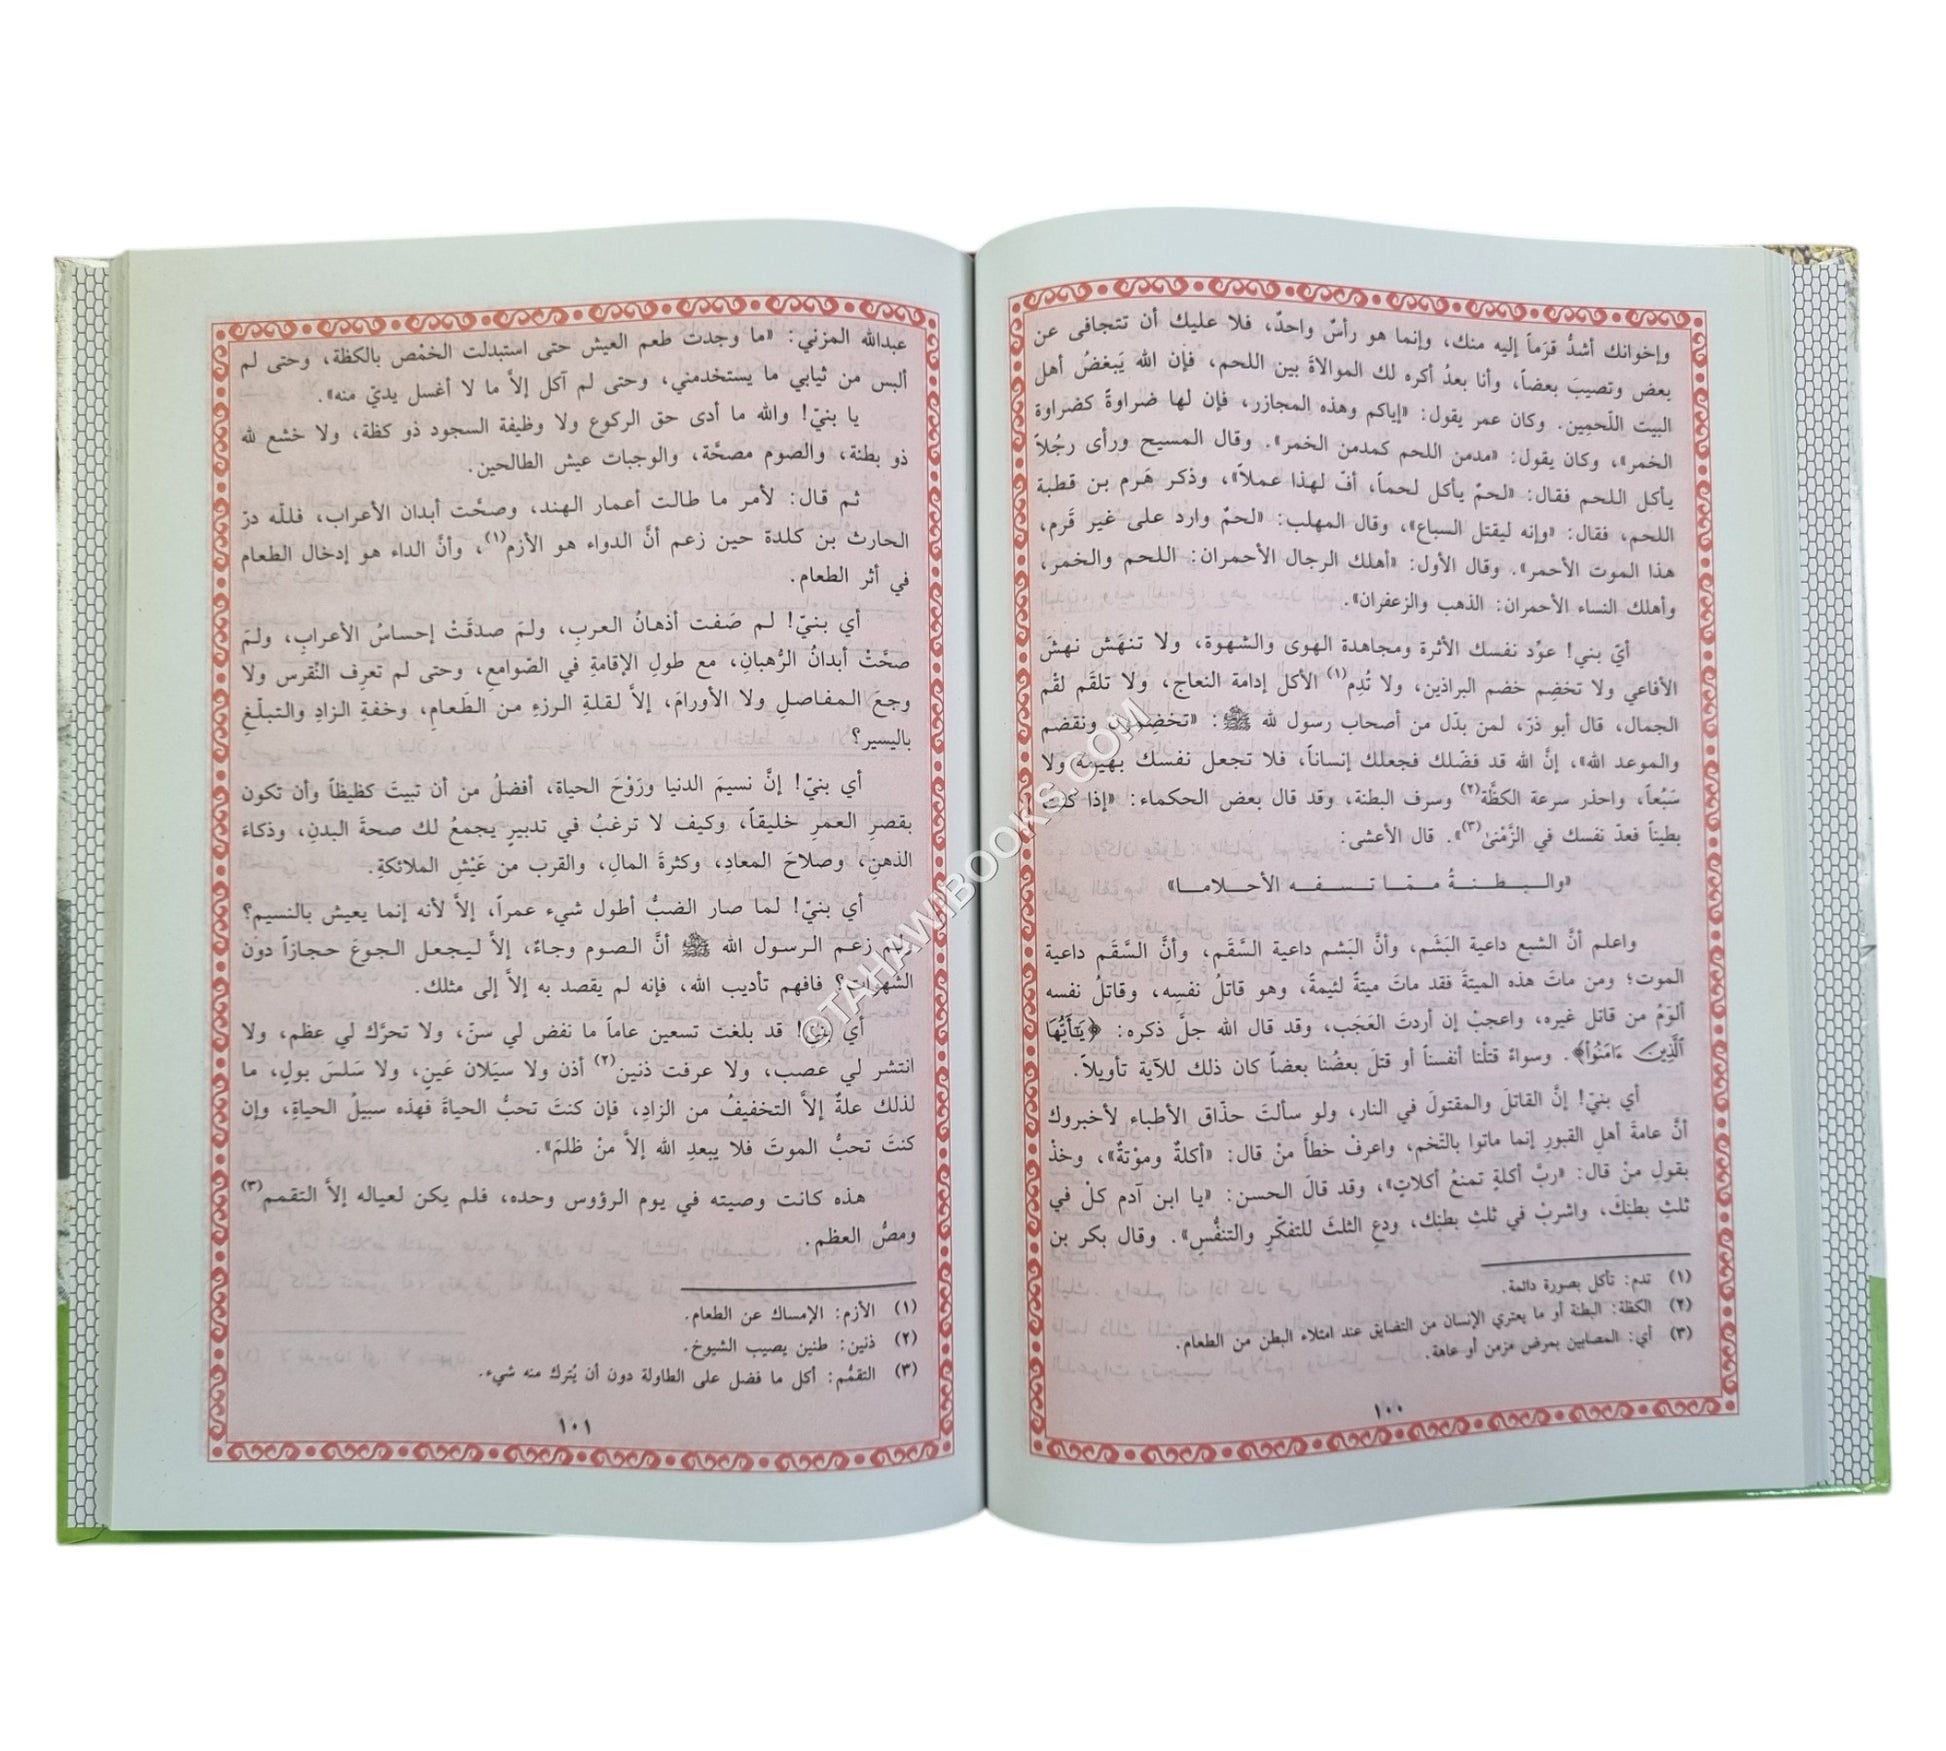 وإخوانك أشدُّ قرَماً إليه منك، وإنما هو رأسٌ واحدٌ، فلا عليك أن تتجافى عن
بعض وتصيبَ بعضاً، وأنا بعدُ أكره لك الموالاةَ بين اللحم، فإن الله يَبغضُ أهل
البيت اللّحمِين. وكان عمر يقول: «إياكم وهذه المجازر، فإن لها ضراوةً كضراوة
الخمر»، وكان يقول: «مدمن اللحم كمدمن الخمر». وقال المسيح ورأى رجُلاً
يأكل اللحم فقال: «لحمٌ يأكل لحماً، أفّ لهذا عملاً»، وذكر هَرم بن قطبة
اللحم، فقال: «وإنه ليقتل السباع»، وقال المهلب: «لحمٌ وارد على غير قَرم،
هذا الموت الأحمر». وقال الأول: «أهلك الرجال الأحمران: اللحم والخمر،
وأهلك النساء الأحمران: الذهب والزعفران».
أيّ بني! عوِّد نفسك الأثرة ومجاهدة الهوى والشهوة، ولا تنهَش نهشَ
الأفاعي ولا تخضِم خضم البراذين، ولا تُدِم(١) الأكل إدامَة النعاج، ولا تلقَم لقْم
الجمال، قال أبو ذرّ، لمن بدّل من أصحاب رسول لله ﷺ: «تخضِمون ونقضم
والموعد الله»، إنَّ الله قد فضّلك فجعلك إنساناً، فلا تجعل نفسك بهيمة ولا
سَبُعاً، واحذر سرعة الكظَّة(٢) وسرف البطنة، وقد قال بعض الحكماء: «إذا كنت
بطيناً فعدّ نفسك في الزَّمْنىٰ(٣)». قال الأعشى:
«والـبـطـنـةُ مـمّـا تـسـفـه الأحـلامـا»
واعلم أنَّ الشبع داعية البَشَم، وأنَّ البَشم داعية السَّقَم، وأنَّ السَّقَم داعية
الموت؛ ومن ماتَ هذه الميتةَ فقد ماتَ ميتةً لئيمةً، وهو قاتلُ نفسِه، وقاتلُ نفسه
ألوَمُ من قاتل غيره، واعجبْ إن أردتَ العَجَب، وقد قال الله جلَّ ذكره: ﴿يَٰٓأَيُّهَا
ٱلَّذِينَ ءَامَنُوا﴾. وسواءٌ قتلْنا أنفسنا أو قتلَ بعضُنا بعضاً كان ذلك للآية تأويلاً.
أي بنيّ! إنَّ القاتلَ والمقتولَ في النار، ولو سألتَ حذّاق الأطباء لأخبروك
أنَّ عامةَ أهلِ القبورِ إنما ماتوا بالتّخم، واعرفْ خطأَ منْ قال: «أكلةٌ وموْتةٌ»، وخذْ
بقولِ منْ قال: «ربَّ أكلةٍ تمنعُ أكلاتٍ»، وقد قالَ الحسن: «يا ابن آدم كلْ في
ثلثِ بطنِك، واشربْ في ثلثِ بطنِك، ودعِ الثلثَ للتفكّرِ والتنفُّسِ». وقال بكر بن
(١) تدم: تأكل بصورة دائمة.
(٢) الكظة: البطنة أو ما يعتري الإنسان من التضايق عند امتلاء البطن من الطعام.
(٣) أي: المصابين بمرض مزمن أو عاهة.
١٠٠
عبدالله المزني: «ما وجدت طعم العيش حتى استبدلت الخمْص بالكظة، وحتى لم
ألبس من ثيابي ما يستخدمني، وحتى لم آكل إلاَّ ما لا أغسل يديّ منه».
يا بنيّ! والله ما أدى حق الركوع ولا وظيفة السجود ذو كظة، ولا خشع لله
ذو بطنة، والصوم مصحَّة، والوجبات عيش الطالحين.
ثم قال: لأمر ما طالت أعمار الهند، وصحَّت أبدان الأعراب، فللّه درّ
الحارث بن كلدة حين زعم أنَّ الدواء هو الأزم(١)، وأنَّ الداء هو إدخال الطعام
في أثر الطعام.
أي بنيّ! لم صَفت أذهانُ العربِ، ولمَ صدقَتْ إحساسُ الأعرابِ، ولمَ
صحَّتْ أبدانُ الرُّهبانِ، مع طولِ الإقامةِ في الصّوامعِ، وحتى لم تعرفِ النّقرس ولا
وجعَ المفاصلِ ولا الأورامَ، إلاَّ لقلةِ الرزءِ من الطَعامِ، وخفةِ الزادِ والتبلّغِ
باليسير؟
أي بنيّ! إنَّ نسيمَ الدنيا ورَوْحَ الحياة، أفضلُ من أن تبيتَ كظيظاً وأن تكون
بقصرِ العمرِ خليقاً، وكيف لا ترغبُ في تدبيرٍ يجمعُ لك صحةَ البدنِ، وذكاءَ
الذهنِ، وصلاحَ المعادِ، وكثرةَ المالِ، والقرب من عَيْشِ الملائكةِ.
أي بنيّ! لما صار الضبُّ أطول شيء عمراً، إلاَّ لأنه إنما يعيش بالنسيم؟
ولم زعم الرسول الله ﷺ أنَّ الصوم وجاءٌ، إلاَّ ليجعل الجوعَ حجازاً دون
الشهوات؟ فافهم تأديب الله، فإنه لم يقصد به إلاَّ إلى مثلك.
أي بنيّ! قد بلغت تسعين عاماً ما نفض لي سنّ، ولا تحرَّك لي عظم، ولا
انتشر لي عصب، ولا عرفت ذنين(٢) أذن ولا سيَلان عَينِ، ولا سَلسَ بولٍ، ما
لذلك علةٌ إلاَّ التخفيفُ من الزادِ، فإن كنتَ تحبُّ الحياةَ فهذه سبيلُ الحياةِ، وإن
كنتَ تحبُّ الموتَ فلا يبعدِ الله إلاَّ منْ ظلمَ».
هذه كانت وصيته في يوم الرؤوس وحده، فلم يكن لعياله إلاَّ التقمم(٣)
ومصُّ العظم.
(١) الأزم: الإمساك عن الطعام.
(٢) ذنين: طنين يصيب الشيوخ.
(٣) التقمُّم: أكل ما فضل على الطاولة دون أن يُترك منه شيء.
١٠١
©TAHAWIBOOKS.COM